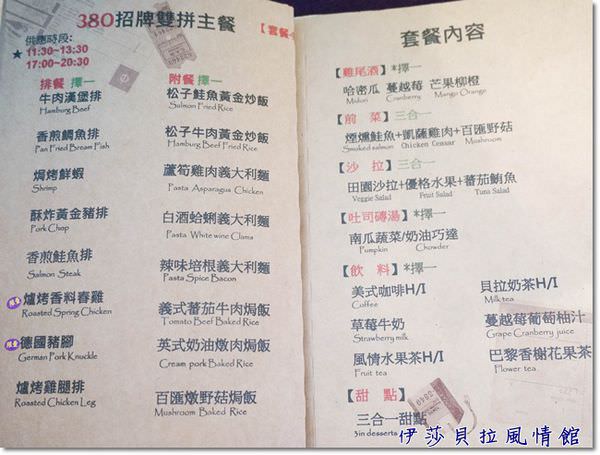 380招牌雙拼主餐
【套餐
供應時段:
★ 11:30~13:30
17:00~20:30
排餐 擇一
牛肉漢堡排
Hamburg Beef
香煎鯛魚排
Pan Fried Bream Fish
焗烤鮮蝦
Shrimp
酥炸黃金豬排
Pork Chop
香煎鮭魚排
Salmon Steak
爐烤香料春雞
Roasted Spring Chicken
德國豬腳
German Pork Knuckle
爐烤雞腿排
Roasted Chicken Leg
附餐 擇一
松子鮭魚黃金炒飯
Salmon Fried Rice
松子牛肉黃金炒飯
Hamburg Beef Fried Rice
蘆筍雞肉義大利麵
Pasta Asparagus Chicken
白酒蛤蜊義大利麵
Pasta White wine Clams
辣味培根義大利麵
Pasta Spice Bacon
義式蕃茄牛肉焗飯
Tomato Beef Baked Rice
英式奶油燉肉焗飯
Cream pork Baked Rice
百匯燉野菇焗飯
Mushroom Baked Rice
套餐內容
【雞尾酒】*擇一
哈密瓜 蔓越莓 芒果柳橙
Midori Cranberry Mango Orange
【前 菜】三合一
煙燻鮭魚+凱薩雞肉+百匯野菇
Smoked salmon Chicken Ceasar Mushroom
【沙 拉】三合一
田園沙拉+優格水果+蕃茄鮪魚
Veggie Salad Fruit Salad Tuna Salad
【吐司磚湯】*擇一
南瓜蔬菜/奶油巧達
Pumpkin Chowder
【飲 料】*擇一
美式咖啡H/I
Coffee
貝拉奶茶H/I
Milk tea
草莓牛奶
Strawberry milk
蔓越莓葡萄柚汁
Grape Cranberry juice
風情水果茶H/I
Fruit tea
巴黎香榭花果茶
Flower tea
【甜 點】
三合一甜點
3in desserts
伊莎貝拉風情館